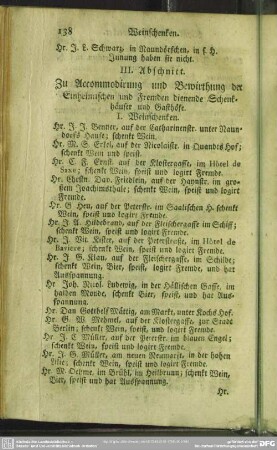 138 Weinschenken.
Hr. J. L. Schwarz, in Naundörfchen, in s. H.
Innung haben sie nicht.
III. Abschnitt.
Zu Accommodirung und Bewirthung der
Einheimischen und Fremden dienende Schenk-
häuser und Gasthöfe.
I. Weinschenken.
Hr. J. J. Benner, auf der Catharinenstr. unter Naun-
dorfs Hause; schenkt Wein.
Hr. M. G. Erkel, auf der Nicolaistr. in Quandts Hof;
schenkt Wein und speist.
Hr. C. F. Ernst, auf der Klostergasse, im Hôtel de
Saxe; schenkt Wein, speist und logirt Fremde.
Hr. Christn. Dav. Friedlein, auf der Haynstr. im gros-
sem Joachimsthale; schenkt Wein, speist und logirt
Fremde.
Hr. G. Heu, auf der Peterstr. im Saalischen H. schenkt
Wein, speist und logirt Fremde.
Hr. J. A. Hildebrand, auf der Fleischergasse im Schiff;
schenkt Wein, speist und logirt Fremde.
Hr. J. Vit. Kister, auf der Petersstraße, im Hôtel de
Baviere; schenkt Wein, speist und logirt Fremde.
Hr. J. G. Klau, auf der Fleischergasse, im Schilde;
schenkt Wein, Bier, speist, logirt Fremde, und hat
Ausspannung.
Hr. Joh. Nicol. Ludewig, in der Hallischen Gasse, im
halben Monde, schenkt Bier, speist, und hat Aus-
spannung.
Hr. Dan Gotthelf Mättig, am Markt, unter Kochs Hof.
Hr. G. W. Mehmel, auf der Klostergasse, zur Stadt
Berlin; schenkt Wein, speist, und logirt Fremde.
Hr. J. C. Müller, auf der Peterstr. im blauen Engel;
schenkt Wein, speist und logirt Fremde.
Hr. J. G. Müller, am neuen Neumarkt, in der hohen
Lilie; schenkt Wein, speist und logirt Fremde.
Hr. M. Oehme, im Brühl, im Heilbrunn; schenkt Wein,
Bier, speist und hat Ausspannung.
Hr.